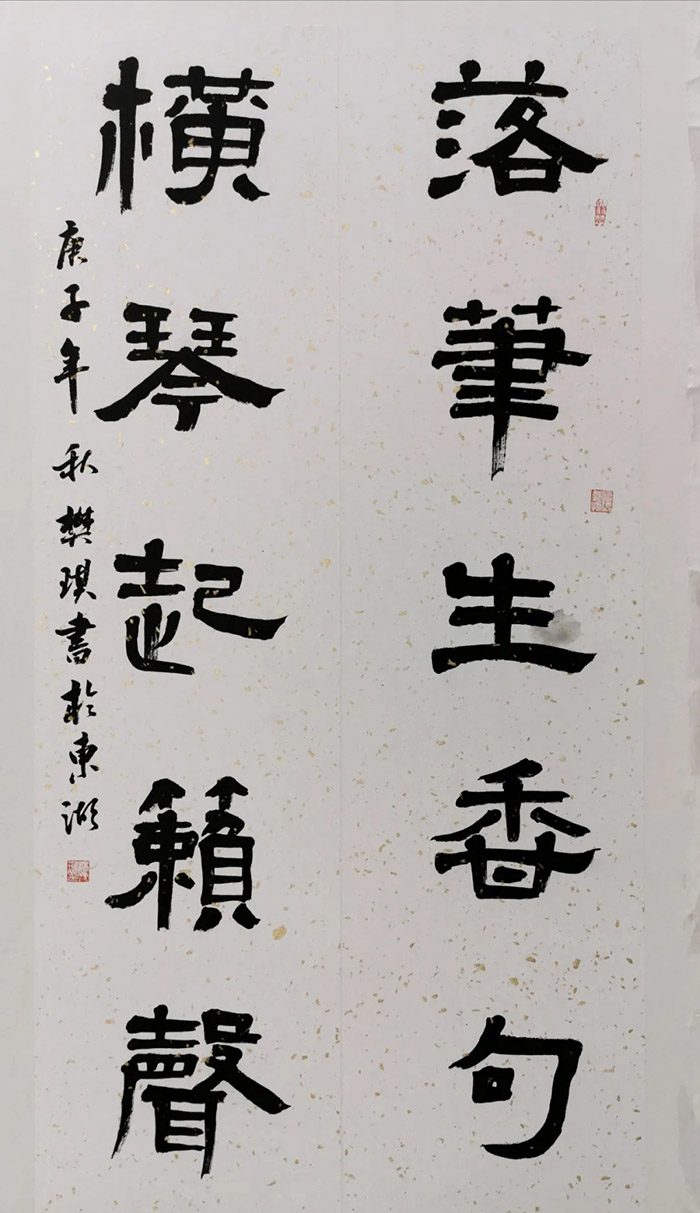 落筆生香句
橫琴起籟聲
庚子年秋樊琪書於東湖